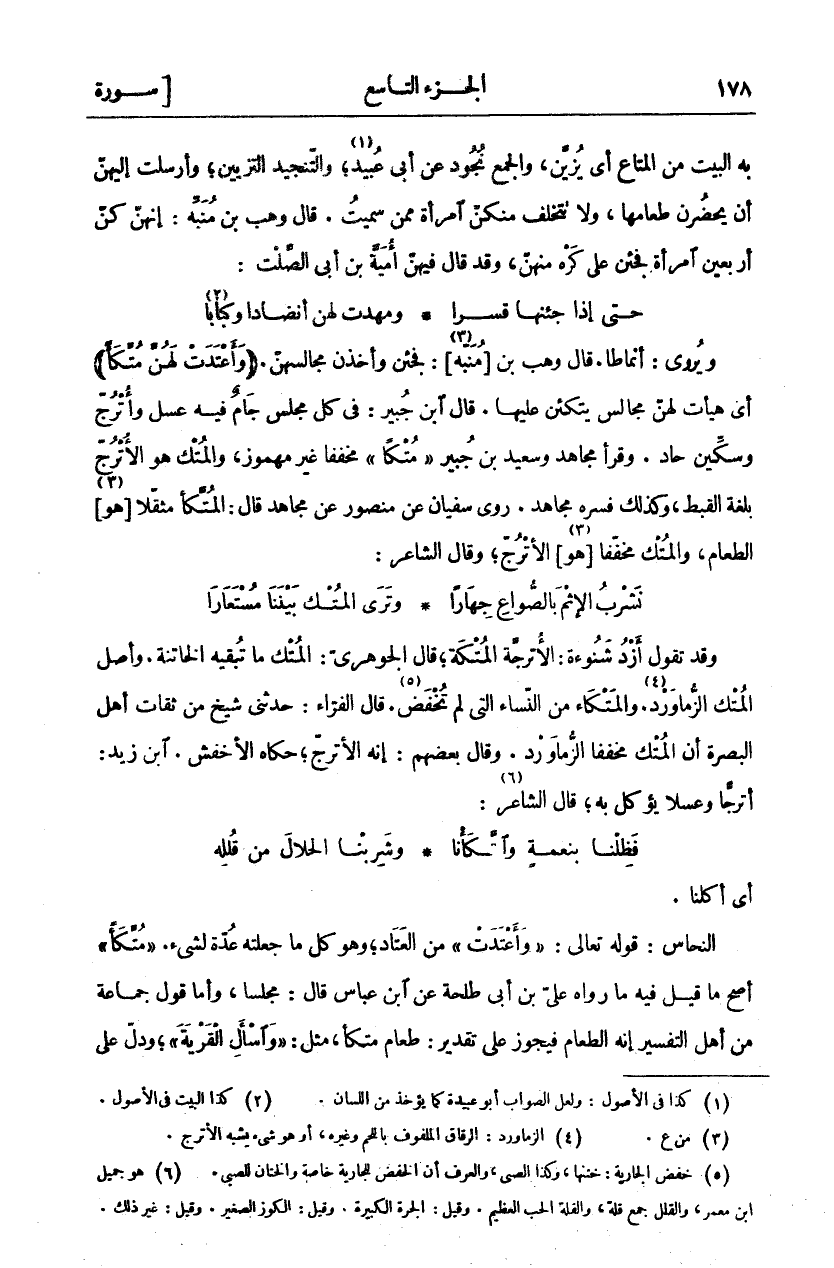 ١٧٨ الجـزء التـاسع [ ســورة
به البيت من المتاع أى يُزيَّن، والجمع نُجُود عن أبى عُبيد(١)؛ والتّنجيد التزيين؛ وأرسلت إليهنّ
أن يحضُرن طعامها، ولا تتخلف منكنّ ٱمرأة ممن سميتُ . قال وهب بن مُنَبِّه : إنهنّ كنّ
أربعين ٱمرأة فجئن على كَرْه منهنّ، وقد قال فيهنّ أُمَيّة بن أبى الصَّلْت :
حـتى إذا جئنهـا قسـرا * ومهدت لهن أنضـادا وكبابا(٢)
ويُروى : أنماطا. قال وهب بن [مُنَبِّه](٣) : فجئن وأخذن مجالسهنّ. ﴿وَأَعْتَدَتْ لَهُنَّ مُتَّكَأً﴾
أى هيأت لهنّ مجالس يتكئن عليهـا . قال ٱبن جُبير : فى كل مجلس جَامٌ فيـه عسل وأُتْرُجّ
وسكّين حاد . وقرأ مجاهد وسعيد بن جُبير « مُتْكًا » مخففا غير مهموز، والمُتْك هو الأُتْرُجّ
بلغة القبط، وكذلك فسره مجاهد . روى سفيان عن منصور عن مجاهد قال: المُتَّكأ مثقّلا [هو](٣)
الطعام، والمُتْك مخفّفا [هو](٣) الأُتْرُجّ؛ وقال الشاعر :
نَشْرَبُ الإِثْمَ بَالصُّواعِ جِهَارًا * وتَرَى المُتْـك بَيْنَنَا مُسْتَعَارَا
وقد تقول أَزْدُ شَنُوءة: الأُترجّة المُتْكَة؛ قال الجوهرىّ : المُتْك ما تُبقيه الخاتنة. وأصل
المُتْك الزُّماوَرْد(٤). والمَتْكَاء من النّساء التى لم تُخْفَض(٥). قال الفرّاء : حدثنى شيخ من ثقات أهل
البصرة أن المُتْك مخففا الزُّماوَرْد . وقال بعضهم : إنه الأترجّ؛ حكاه الأخفش . ٱبن زيد:
أترجًّا وعسلا يؤكل به؛ قال الشاعر(٦) :
فَظِلْنـا بنعمـةٍ وٱتَّـكَأْنا * وشَرِبْنـا الحلالَ من قُلَلِه
أى أكلنا .
النحاس : قوله تعالى : « وَأَعْتَدَتْ » من العَتَاد؛ وهو كل ما جعلته عُدّة لشىء. « مُتَّكَأً »
أصح ما قيـل فيه ما رواه علىّ بن أبى طلحة عن ٱبن عباس قال : مجلسا، وأما قول جمـاعة
من أهل التفسير إنه الطعام فيجوز على تقدير : طعام متكأ، مثل: «وَٱسْأَلِ الْقَرْيَةَ»؛ ودلّ على
(١) كذا فى الأصول : ولعل الصواب أبو عبيدة كما يؤخذ من اللسان . (٢) كذا البيت فى الأصول .
(٣) من ع . (٤) الزماورد : الرقاق الملفوف باللحم وغيره، أو هو شىء يشبه الأترج .
(٥) خفض الجارية : ختنها، وكذا الصبى، والعرف أن الخفض للجارية خاصة والختان للصبى. (٦) هو جميل
ابن معمر، والقلل جمع قلة، والقلة الحب العظيم . وقيل : الجرة الكبيرة . وقيل : الكوز الصغير . وقيل : غير ذلك .